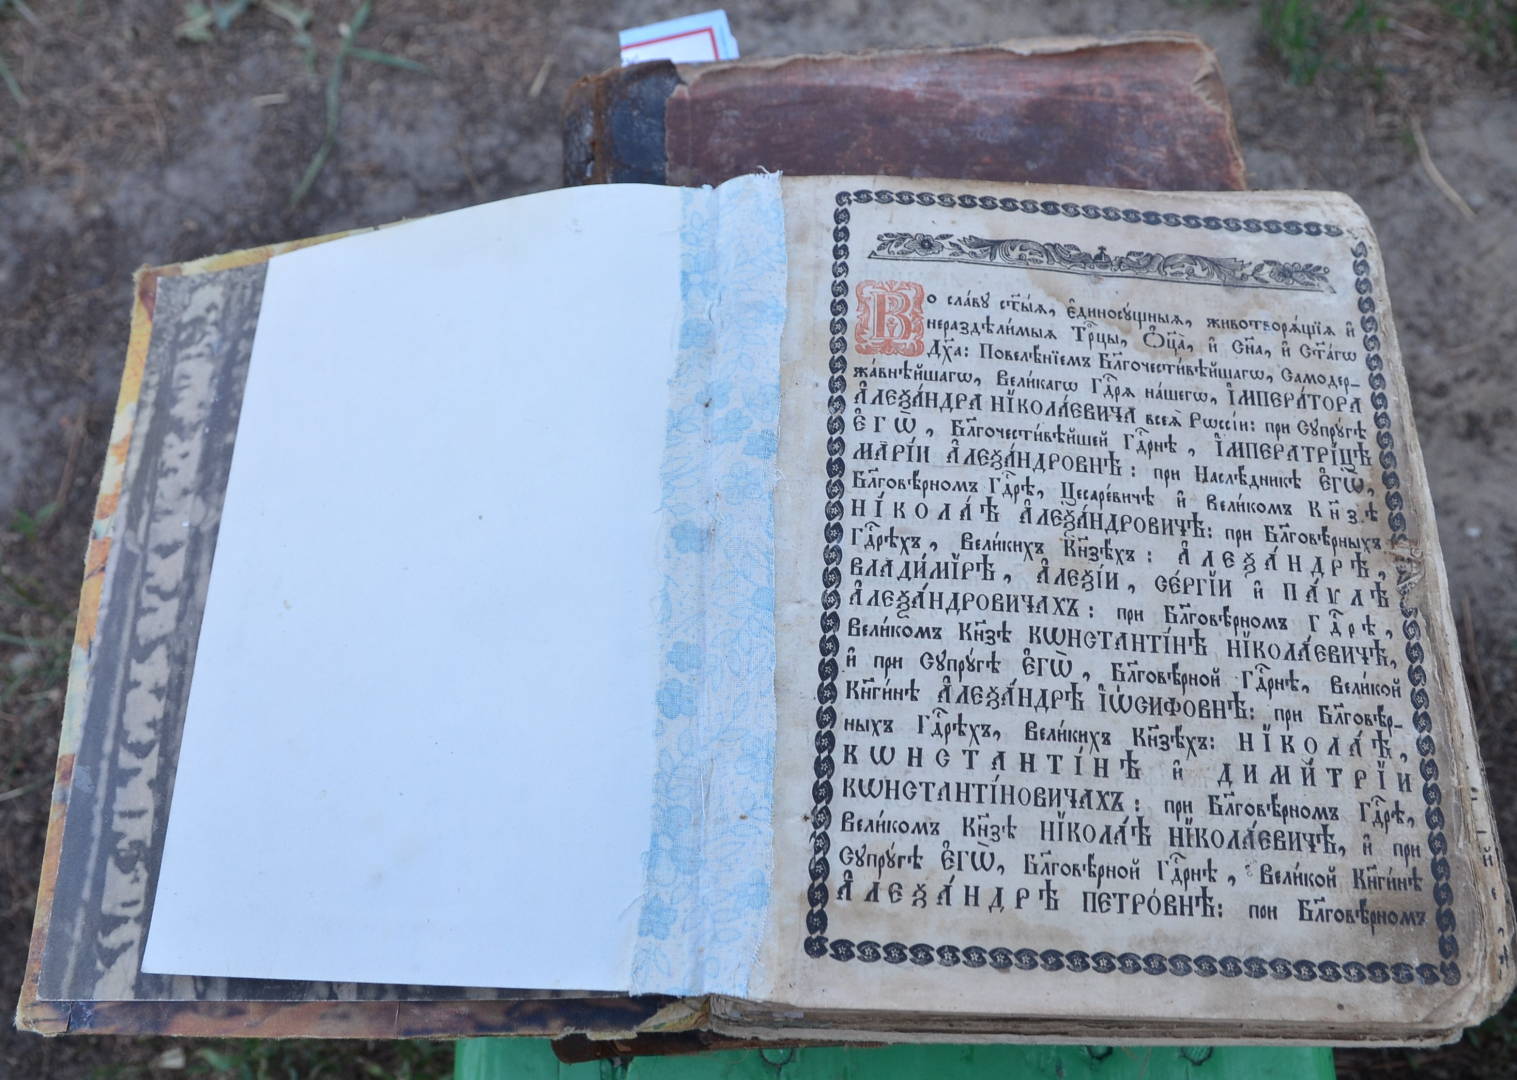 Во сла́вꙋ ст҃ы́ѧ, є҆диносꙋ́щныѧ, животворѧ́щїѧ и҆
нераздѣли́мыѧ Трⷪ҇цы, Ѻ҆ц҃а̀, и҆ Сн҃а, и҆ Ст҃а́гѡ
Дх҃а: Повелѣ́нїемъ Бл҃гочести́вѣйшагѡ, Самодер-
жа́внѣйшагѡ, Вели́кагѡ Гдⷭ҇рѧ на́шегѡ, І҆МПЕРА́ТОРА
А҆ЛЕѮА́НДРА НЇКОЛА́ЕВИЧА всеѧ̀ Рѡссі́и: при Сꙋпрꙋ́гѣ
Є҆ГѠ̀, Бл҃гочести́вѣйшей Гдⷭ҇рнѣ, І҆МПЕРАТРІ́ЦѢ
МАРІ́И А҆ЛЕѮА́НДРОВНѢ: при Наслѣ́дникѣ Є҆ГѠ̀,
Бл҃говѣ́рномъ Гдⷭ҇рѣ, Цесаре́вичѣ и҆ Вели́комъ Кн҃зѣ
НЇКОЛА́Ѣ А҆ЛЕѮА́НДРОВИЧѢ: при Бл҃говѣ́рныхъ
Гдⷭ҇рѣхъ, Вели́кихъ Кн҃зѣхъ: А҆ЛЕѮА́НДРѢ,
ВЛАДИ́МЇРѢ, А҆ЛЕѮІ́И, СЕ́РГІИ и҆ ПА́ѴЛѢ
А҆ЛЕѮА́НДРОВИЧАХЪ: при Бл҃говѣ́рномъ Гдⷭ҇рѣ,
Вели́комъ Кн҃зѣ КѠНСТАНТІ́НѢ НЇКОЛА́ЕВИЧѢ,
и҆ при Сꙋпрꙋ́гѣ Є҆ГѠ̀, Бл҃говѣ́рной Гдⷭ҇рнѣ, Вели́кой
Кн҃ги́нѣ А҆ЛЕѮА́НДРѢ І҆Ѡ́СИФОВНѢ: при Бл҃говѣ́р-
ныхъ Гдⷭ҇рѣхъ, Вели́кихъ Кн҃зѣхъ: НЇКОЛА́Ѣ,
КѠНСТАНТІ́НѢ и҆ ДИМИ́ТРІИ
КѠНСТАНТІ́НОВИЧАХЪ: при Бл҃говѣ́рномъ Гдⷭ҇рѣ,
Вели́комъ Кн҃зѣ НЇКОЛА́Ѣ НЇКОЛА́ЕВИЧѢ, и҆ при
Сꙋпрꙋ́гѣ Є҆ГѠ̀, Бл҃говѣ́рной Гдⷭ҇рнѣ, Вели́кой Кн҃ги́нѣ
А҆ЛЕѮА́НДРѢ ПЕТРО́ВНѢ: при Бл҃говѣ́рномъ